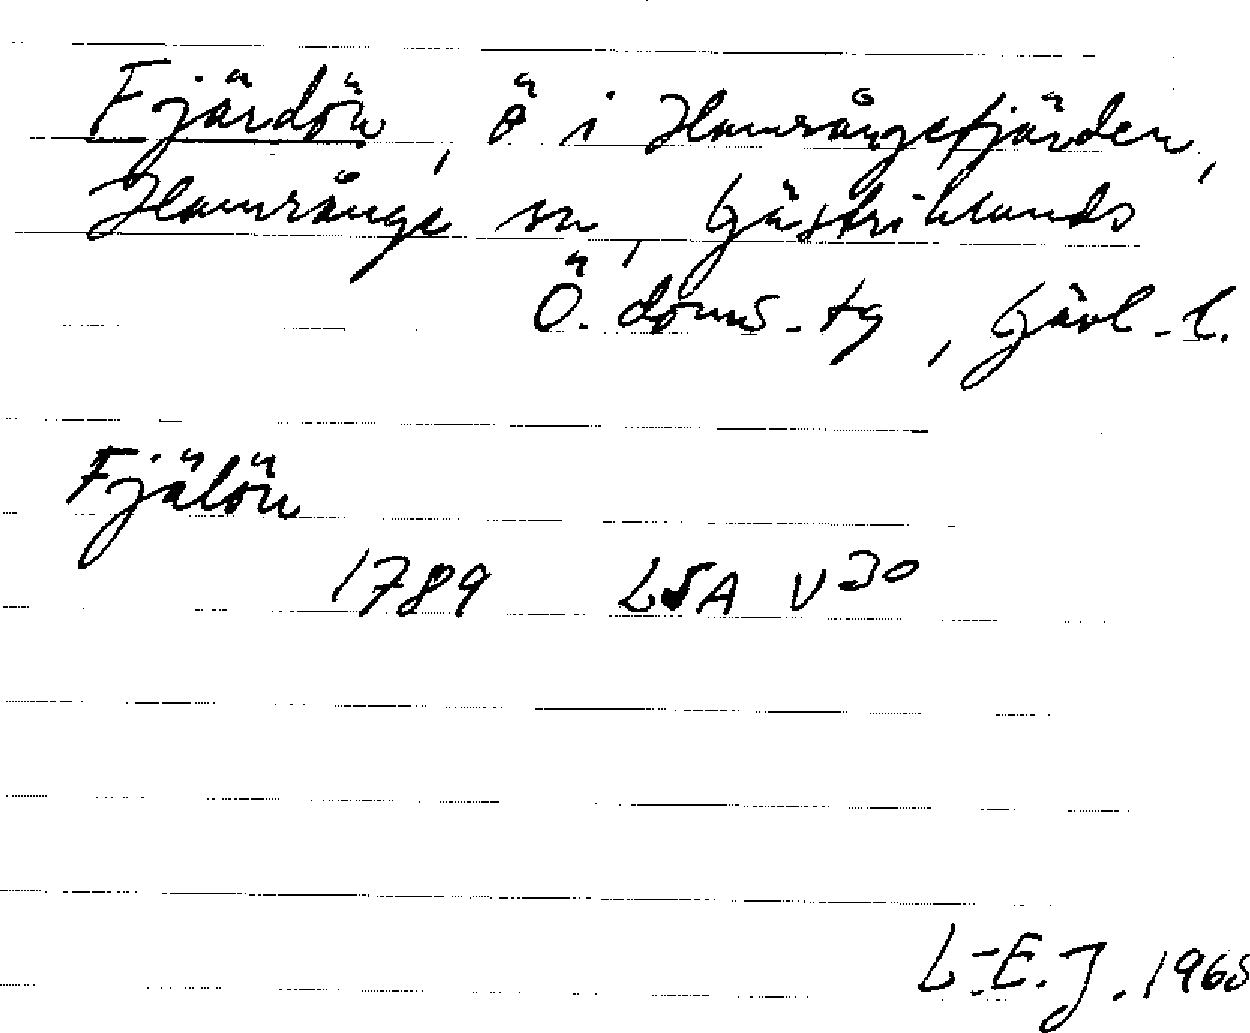 Fjärdön, Ö i Hamrångefjärden,
Hamrånge sn, Gästriklands
Ö. doms-tg, Gävl-l.
Fjälön
1789 LSA V30
L-E.J. 1968